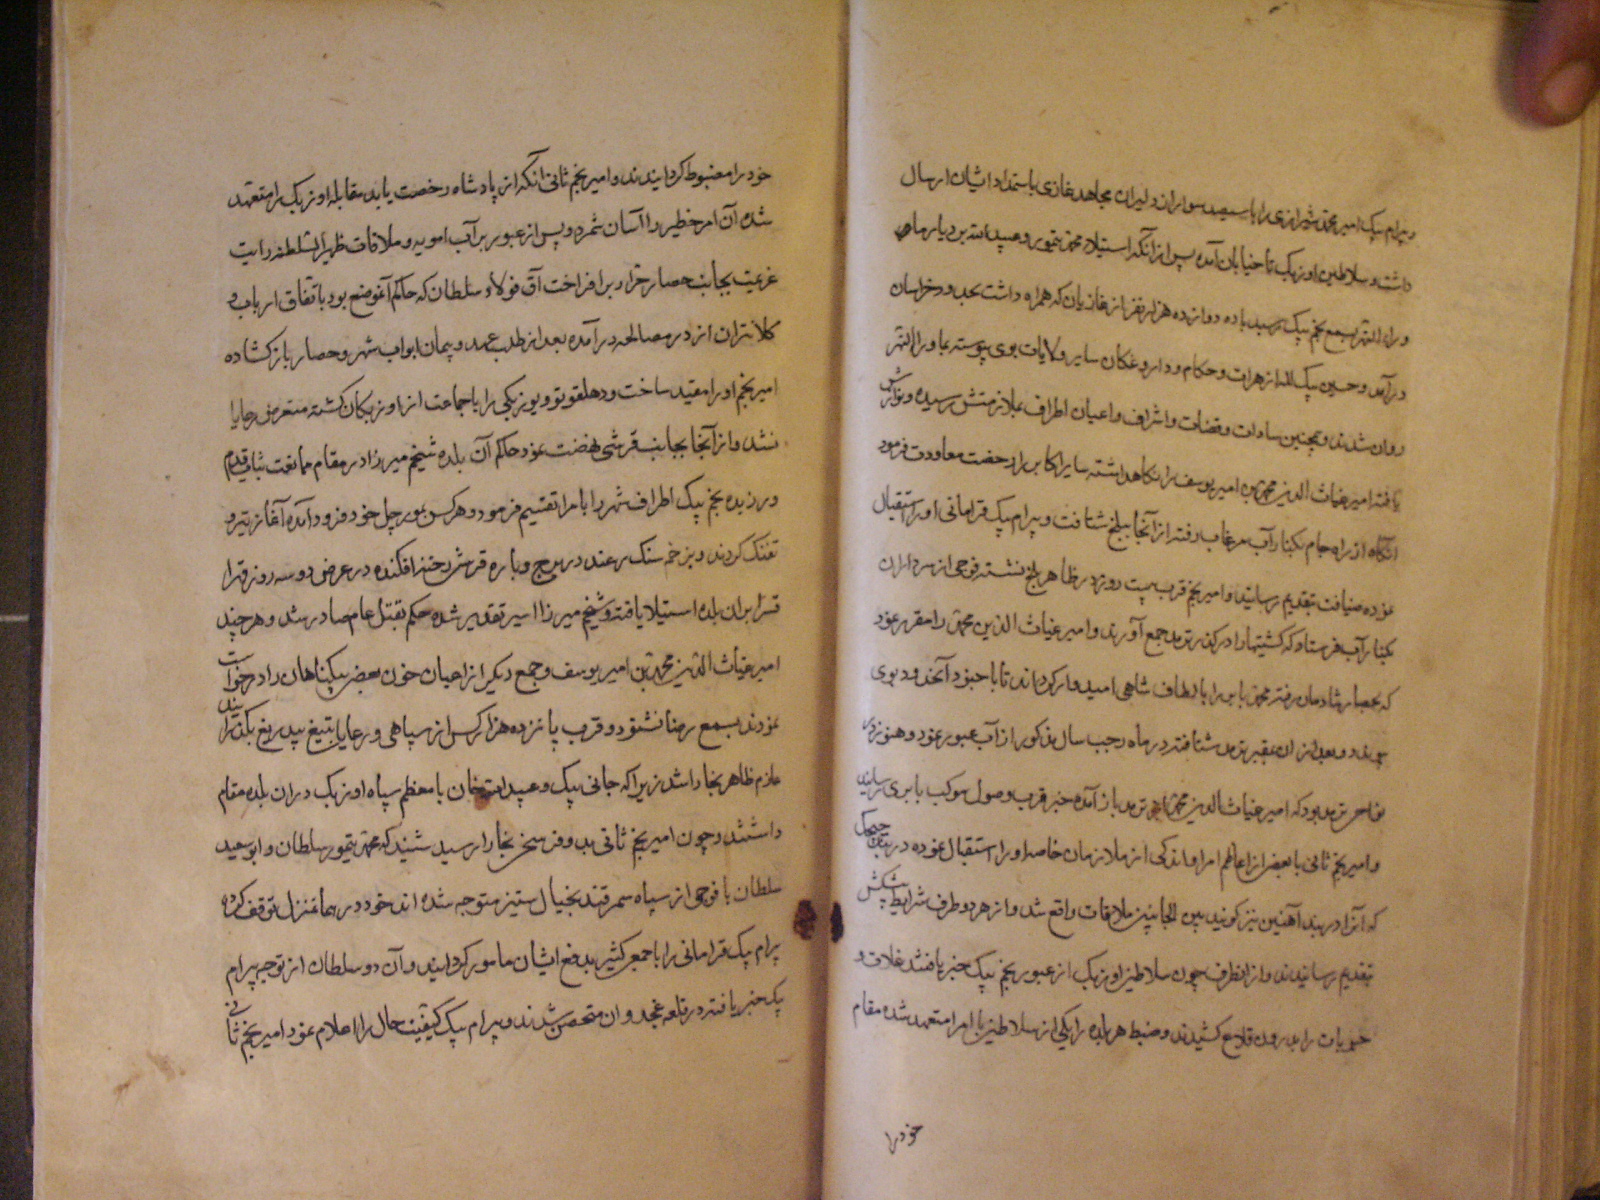 وبیرام بیک امیر محمد شیرازی را با سیصد سوار از دلیران مجاهد غازی باستمداد ایشان ارسال
داشت و سلاطین اوزبک تا خیابان آمده پس از آنکه استیلاء محمد تیمور و عبید الله بر دیار
وراء النهر بسمع نجم بیک رسید با ده دوازده هزار نفر از غازیان که همراه داشت بحدود خراسان
درآمد و حسین بیک لله از هرات و حکام و داروغکان سایر ولایات بوی پیوسته بماوراء النهر
روان شدند و همچنین سادات و قضات و اشراف و اعیان اطراف بملازمتش رسیده و نوازش
یافته امیر غیاث الدین محمد بن امیر یوسف را نکاهداشته سایر اکابر را رخصت معاودت فرمود
آنکاه از راه جام بکنار آب مرغاب رفته از آنجا ببلخ شتافت و بیرام بیک قرامانی او را استقبال
نموده ضیافت بتقدیم رسانید و امیر نجم قرب بیست روز در ظاهر بلخ نشسته فوجی از سرداران
بکنار آب فرستاد که کشتیها را در کذر ترمد جمع آورند و امیر غیاث الدین محمد را مقرر نمود
که بحصار شادمان رفته محمد بابر را بالطاف شاهی امیدوار کرداند تا با جنود آنحدود بوی
پیوندد و بعد از ان بمعبر ترمد شتافته در ماه رجب سال مذکور از آب عبور نمود و هنوز در
نواحی ترمد بود که امیر غیاث الدین محمد باز آمده خبر قرب وصول موکب بابری رسانید
و امیر نجم ثانی با بعضی از اعاظم امرا و اندکی از ملازمان خاصه او را استقبال نموده در تنک چکچک
که آنرا دربند آهنین نیز کویند بین الجانبین ملاقات واقع شد و از هر دو طرف شرایط پیشکش
بتقدیم رسانیدند و از انطرف چون سلاطین اوزبک از عبور نجم بیک خبر یافتند غلات و
حبوبات را بدرون قلاع کشیدند و ضبط هر بلده را یکی از سلاطین با امرا متعهد شده مقام
خود را
خود را مضبوط کردانیدند و امیر نجم ثانی آنکه از پادشاه رخصت یابد مقابله اوزبک را متعهد
شده آن امر خطیر را آسان شمرد و پس از عبور بر آب امویه و ملاقات ظهیر السلطنه رایت
عزیمت بجانب حصار خزار برافراخت آق فولاد سلطان که حاکم آنموضع بود باتفاق ارباب و
کلانتران از در مصالحه درآمده بعد از طلب عهد و پیمان ابواب شهر و حصار باز کشاده
امیر نجم او را مقید ساخت و با جماعت از اوزبکان کشته متعرض رعایا
نشد و از آنجا بجانب قرشی نهضت نمود حاکم آن بلده شیخم میرزا در مقام ممانعت ثبات قدم
ورزیده نجم بیک اطراف شهر را بامرا تقسیم فرمود و هر کس بمورچل خود فرود آمده آغاز تیر و
تفنک کردند و بزخم سنک رعد در برج و باره قرشی رخنه افکنده در عرض دو سه روز قهرا
قسرا بران بلده استیلا یافته و شیخم میرزا اسیر تقدیر شده حکم بقتل عام صادر شد و هر چند
امیر غیاث الدین محمد بن امیر یوسف و جمعی دیکر از اعیان خون بعضی بیکناهان را درخواست
نمودند بسمع رضا نشنود و قرب پانزده هزار کس از سپاهی و رعایا بتیغ بیدریغ بکذرانیدند
عازم ظاهر بخارا شد زیرا که جانی بیک و عبید الله خان با معظم سپاه اوزبک دران بلده مقام
داشتند و چون امیر نجم ثانی بدو فرسخی بخارا رسید شنید که محمد تیمور سلطان و ابو سعید
سلطان با فوجی از سپاه سمرقند بخیال ستیز متوجه شده اند خود در همانمنزل توقف کرده
بیرام بیک قرامانی را با جمعی کثیر بدفع ایشان مامور کردانید و آن دو سلطان از توجه بیرام
بیک خبر یافته در قلعه غجدوان متحصن شدند و بیرام بیک کیفیت حال را اعلام نمود امیر نجم ثانی